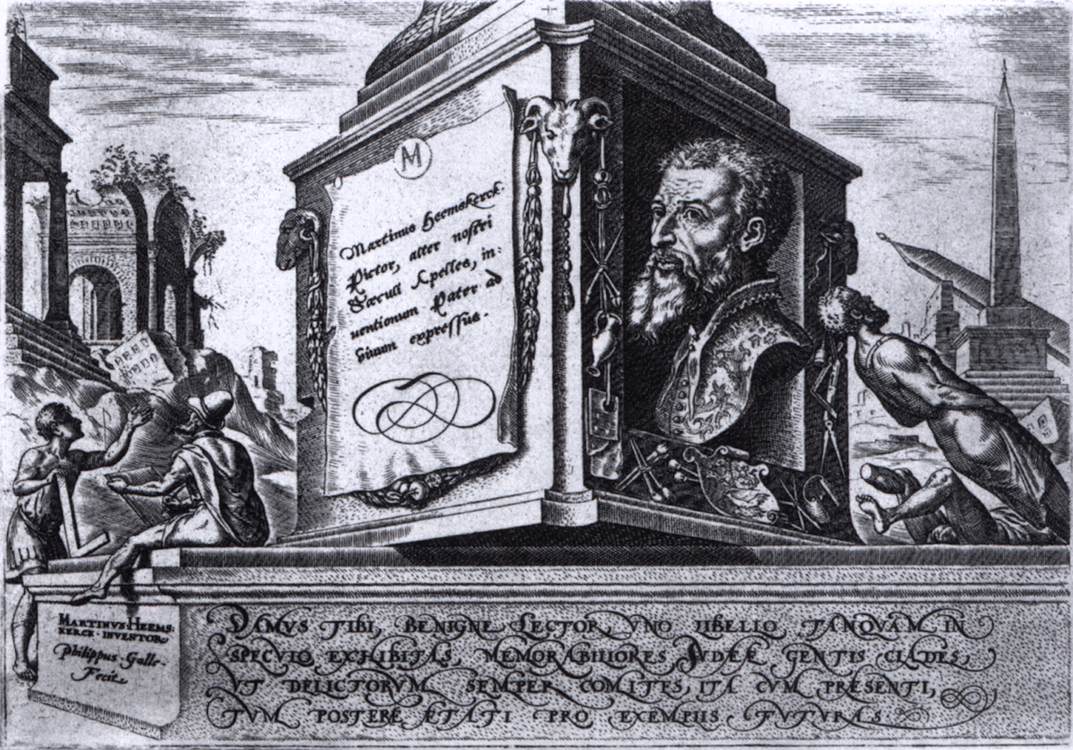 M
Martinus Heemskerck.
Pictor, alter nostri
Sæculi Apelles, in:
uentionum Pater ad
viuum expressus.
MARTINVS HEEMS:
KERCK · INVENTOR
Philippus Galle
Fecit
DAMVS TIBI, BENIGNE LECTOR, VNO LIBELLO, TANQVAM IN
SPECVLO EXHIBITAS, MEMORABILIORES IVDEÆ GENTIS CLADES,
VT DELICTORVM SEMPER COMITES, ITA CVM PRESENTI,
TVM POSTERÆ ÆTATI PRO EXEMPLIS FVTVRAS